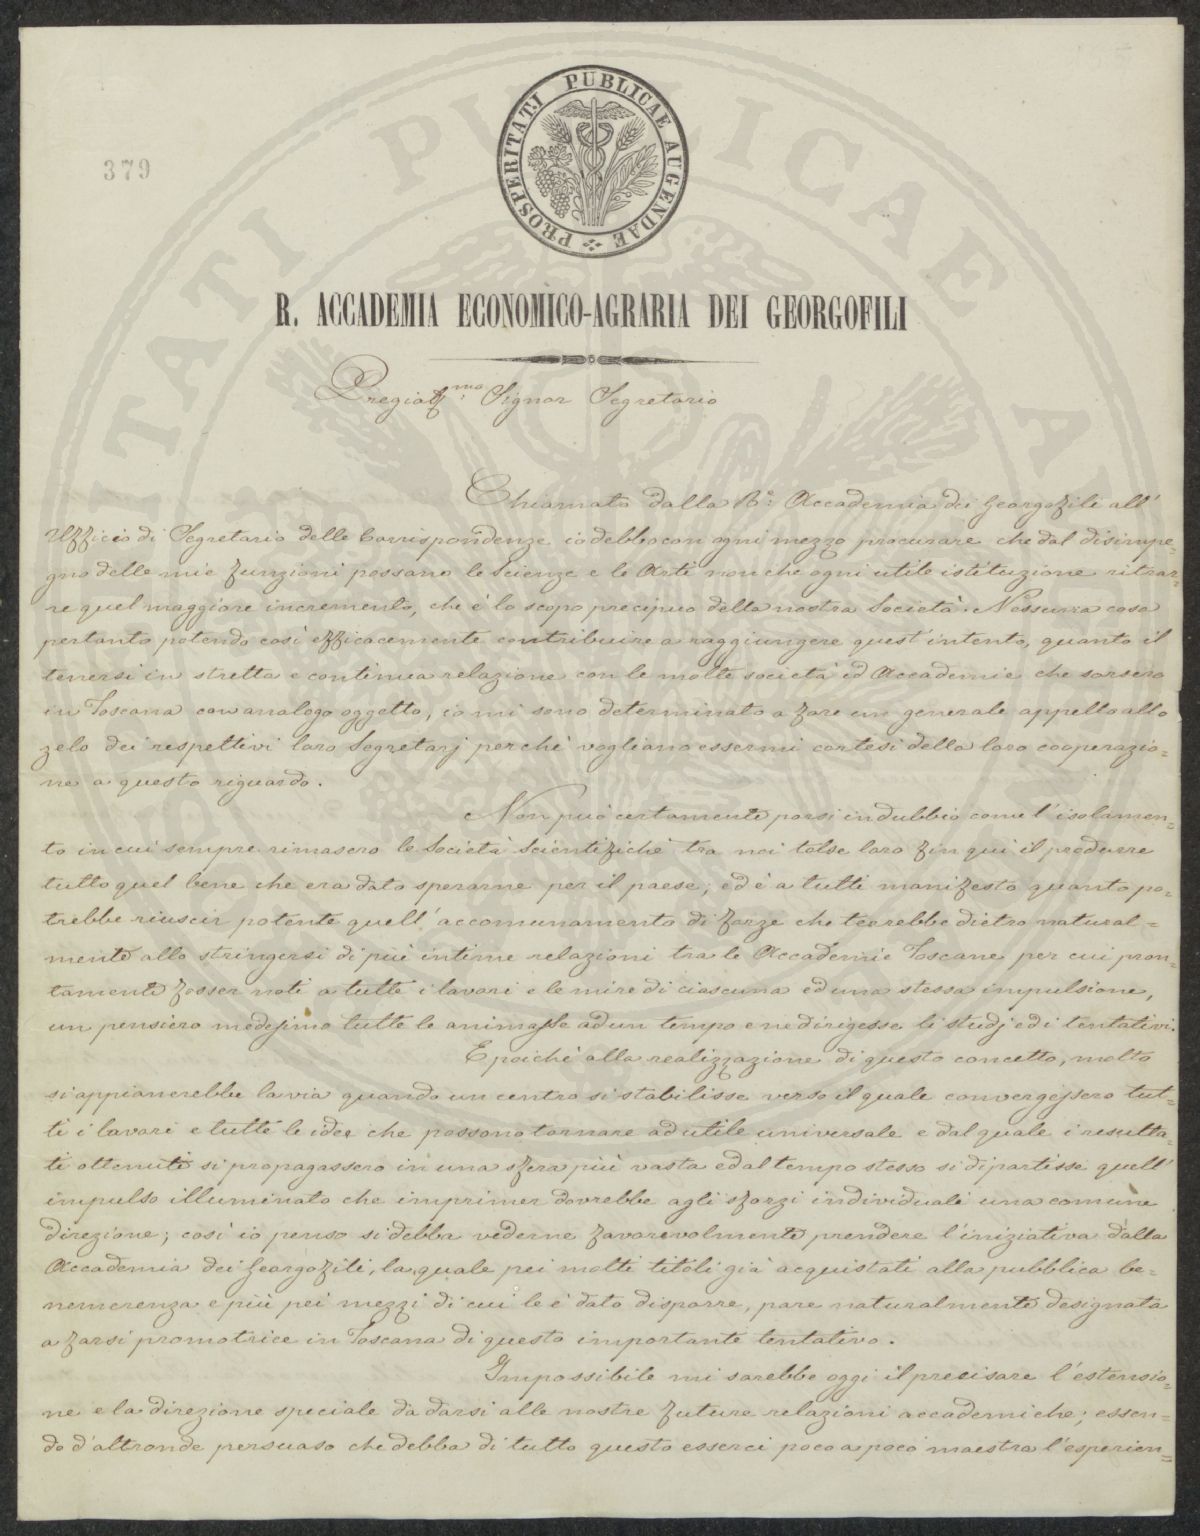 379
PROSPERITATI PUBLICAE AUGENDAE
R. ACCADEMIA ECONOMICO-AGRARIA DEI GEORGOFILI
Pregiat.mo Signor Segretario
Chiamato dalla R.e Accademia dei Georgofili all'
Uffizio di Segretario delle Corrispondenze io debbo con ogni mezzo procurare che dal disimpe=
gno delle mie funzioni possano le Scienze e le Arti non che ogni utile istituzione ritrar=
re quel maggiore incremento, che è lo scopo precipuo della nostra Società. Nessuna cosa
pertanto potendo così efficacemente contribuire a raggiungere quest'intento, quanto il
tenersi in stretta e continua relazione con le molte società ed Accademie che sorsero
in Toscana con analogo oggetto, io mi sono determinato a fare un generale appello allo
zelo dei respettivi loro Segretarj perchè vogliano essermi cortesi della loro cooperazio=
ne a questo riguardo.
Non può certamente porsi in dubbio come l'isolamen=
to in cui sempre rimasero le Società Scientifiche tra noi tolse loro fin qui il produrre
tutto quel bene che era dato sperarne per il paese; ed è a tutti manifesto quanto po=
trebbe riuscir potente quell'accomunamento di forze che terrebbe dietro natural=
mente allo stringersi di più intime relazioni tra le Accademie Toscane per cui pron=
tamente fosser noti a tutte i lavori e le mire di ciascuna ed una stessa impulsione,
un pensiero medesimo tutte le animasse ad un tempo e ne dirigesse li studj ed i tentativi.
E poichè alla realizzazione di questo concetto, molto
si appianerebbe la via quando un centro si stabilisse verso il quale convergessero tut=
ti i lavori e tutte le idee che possono tornare ad utile universale e dal quale i resulta=
ti ottenuti si propagassero in una sfera più vasta ed al tempo stesso si dipartisse quell'
impulso illuminato che imprimer dovrebbe agli sforzi individuali una comune
direzione; così io penso si debba vederne favorevolmente prendere l'iniziativa dalla
Accademia dei Georgofili, la quale pei molti titoli già acquistati alla pubblica be=
nemerenza e più pei mezzi di cui le è dato disporre, pare naturalmente designata
a farsi promotrice in Toscana di questo importante tentativo.
Impossibile mi sarebbe oggi il precisare l'estensio=
ne e la direzione speciale da darsi alle nostre future relazioni accademiche; essen=
do d'altronde persuaso che debba di tutto questo esserci poco a poco maestra l'esperien=